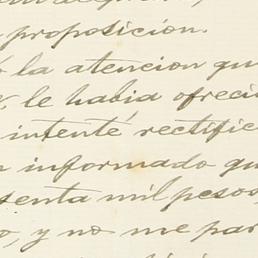 proposición.
la atencion qu
le habia ofreci
intenté rectific
informado qu
senta mil pesos,
o, y no me par